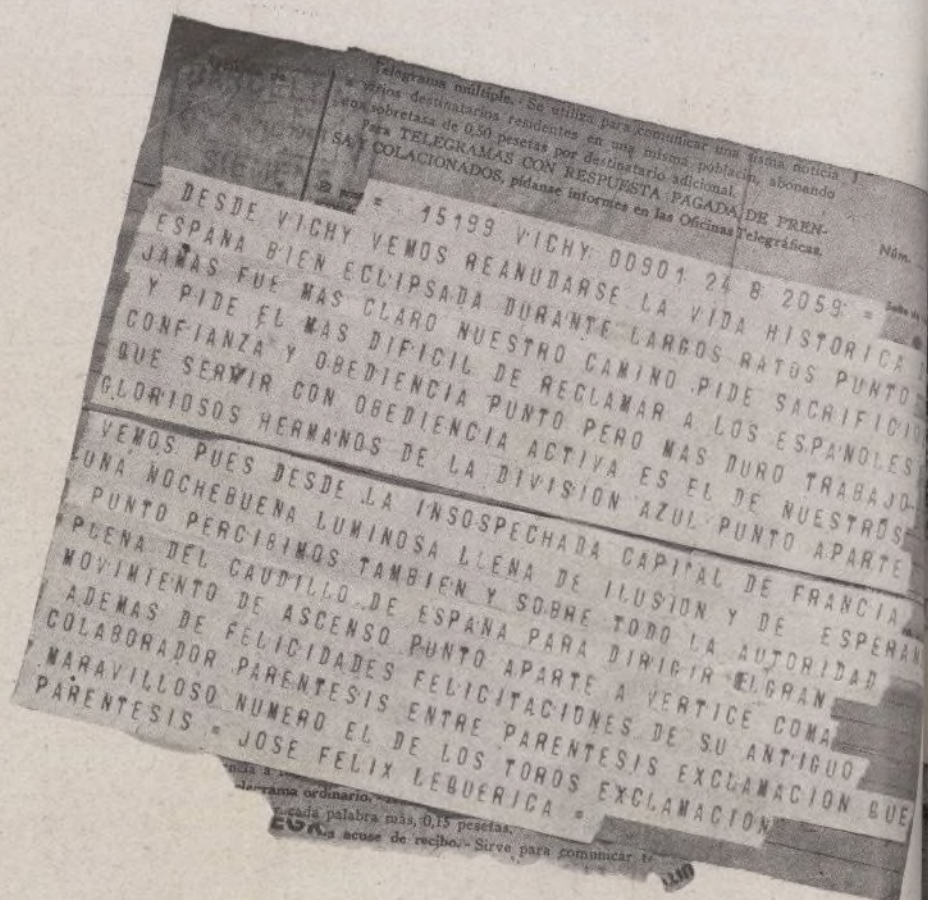 Telegrama múltiple. - Se utiliza para comunicar una misma noticia
a varios destinatarios residentes en una misma poblacin, abonando
con sobretasa de 0,50 pesetas por destinatario adicional.
Para TELEGRAMAS CON RESPUESTA PAGADA, DE PREN-
SA Y COLACIONADOS, pídanse informes en las Oficinas Telegráficas.
Núm.
= 15199 VICHY 00901 24 8 2059 =
DESDE VICHY VEMOS REANUDARSE LA VIDA HISTORICA
ESPAÑA BIEN ECLIPSADA DURANTE LARGOS RATOS PUNTO
JAMAS FUE MAS CLARO NUESTRO CAMINO PIDE SACRIFICIO
Y PIDE EL MAS DIFICIL DE RECLAMAR A LOS ESPAÑOLES
CONFIANZA Y OBEDIENCIA PUNTO PERO MAS DURO TRABAJO
QUE SERVIR CON OBEDIENCIA ACTIVA ES EL DE NUESTROS
GLORIOSOS HERMANOS DE LA DIVISION AZUL PUNTO APARTE
VEMOS PUES DESDE LA INSOSPECHADA CAPITAL DE FRANCIA
UNA NOCHEBUENA LUMINOSA LLENA DE ILUSION Y DE ESPERAN
PUNTO PERCIBIMOS TAMBIEN Y SOBRE TODO LA AUTORIDAD
PLENA DEL CAUDILLO DE ESPAÑA PARA DIRIGIR ELGRAN
MOVIMIENTO DE ASCENSO PUNTO APARTE A VERTICE COMA
ADEMAS DE FELICIDADES FELICITACIONES DE SU ANTIGUO
COLABORADOR PARENTESIS ENTRE PARENTESIS EXCLAMACION QUE
MARAVILLOSO NUMERO EL DE LOS TOROS EXCLAMACION
PARENTESIS = JOSE FELIX LEQUERICA =
ordinario.
cada palabra más, 0,15 pesetas.
acuse de recibo. - Sirve para comunicar